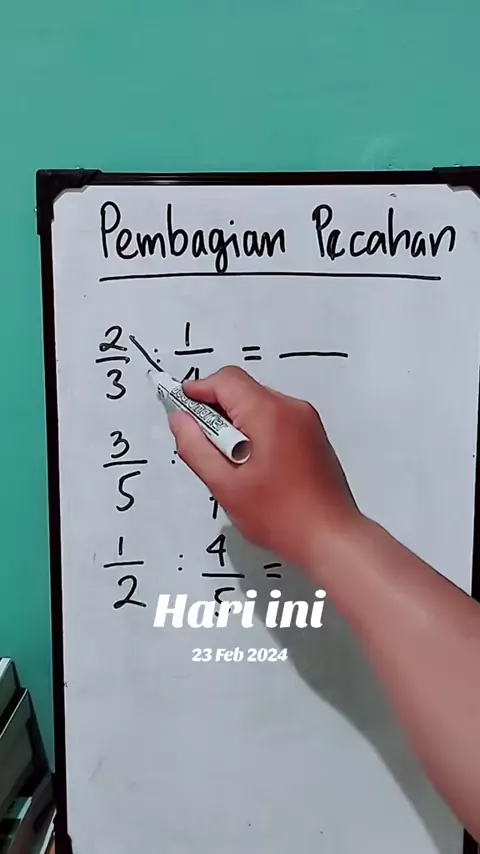 Pembagian Pecahan
2/3 : 1/4 = __
3/5 :
1/2 : 4/5 =
Hari ini
23 Feb 2024